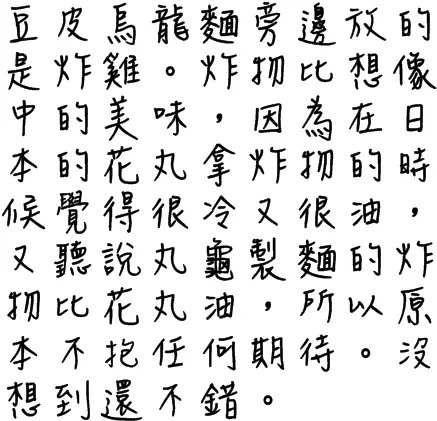 豆皮烏龍麵旁邊放的
是炸雞。炸物比想像
中的美味，因為在日
本的花丸拿炸物的時
候覺得很冷又很油，
又聽說丸龜製麵的炸
物比花丸油，所以原
本不抱任何期待。沒
想到還不錯。